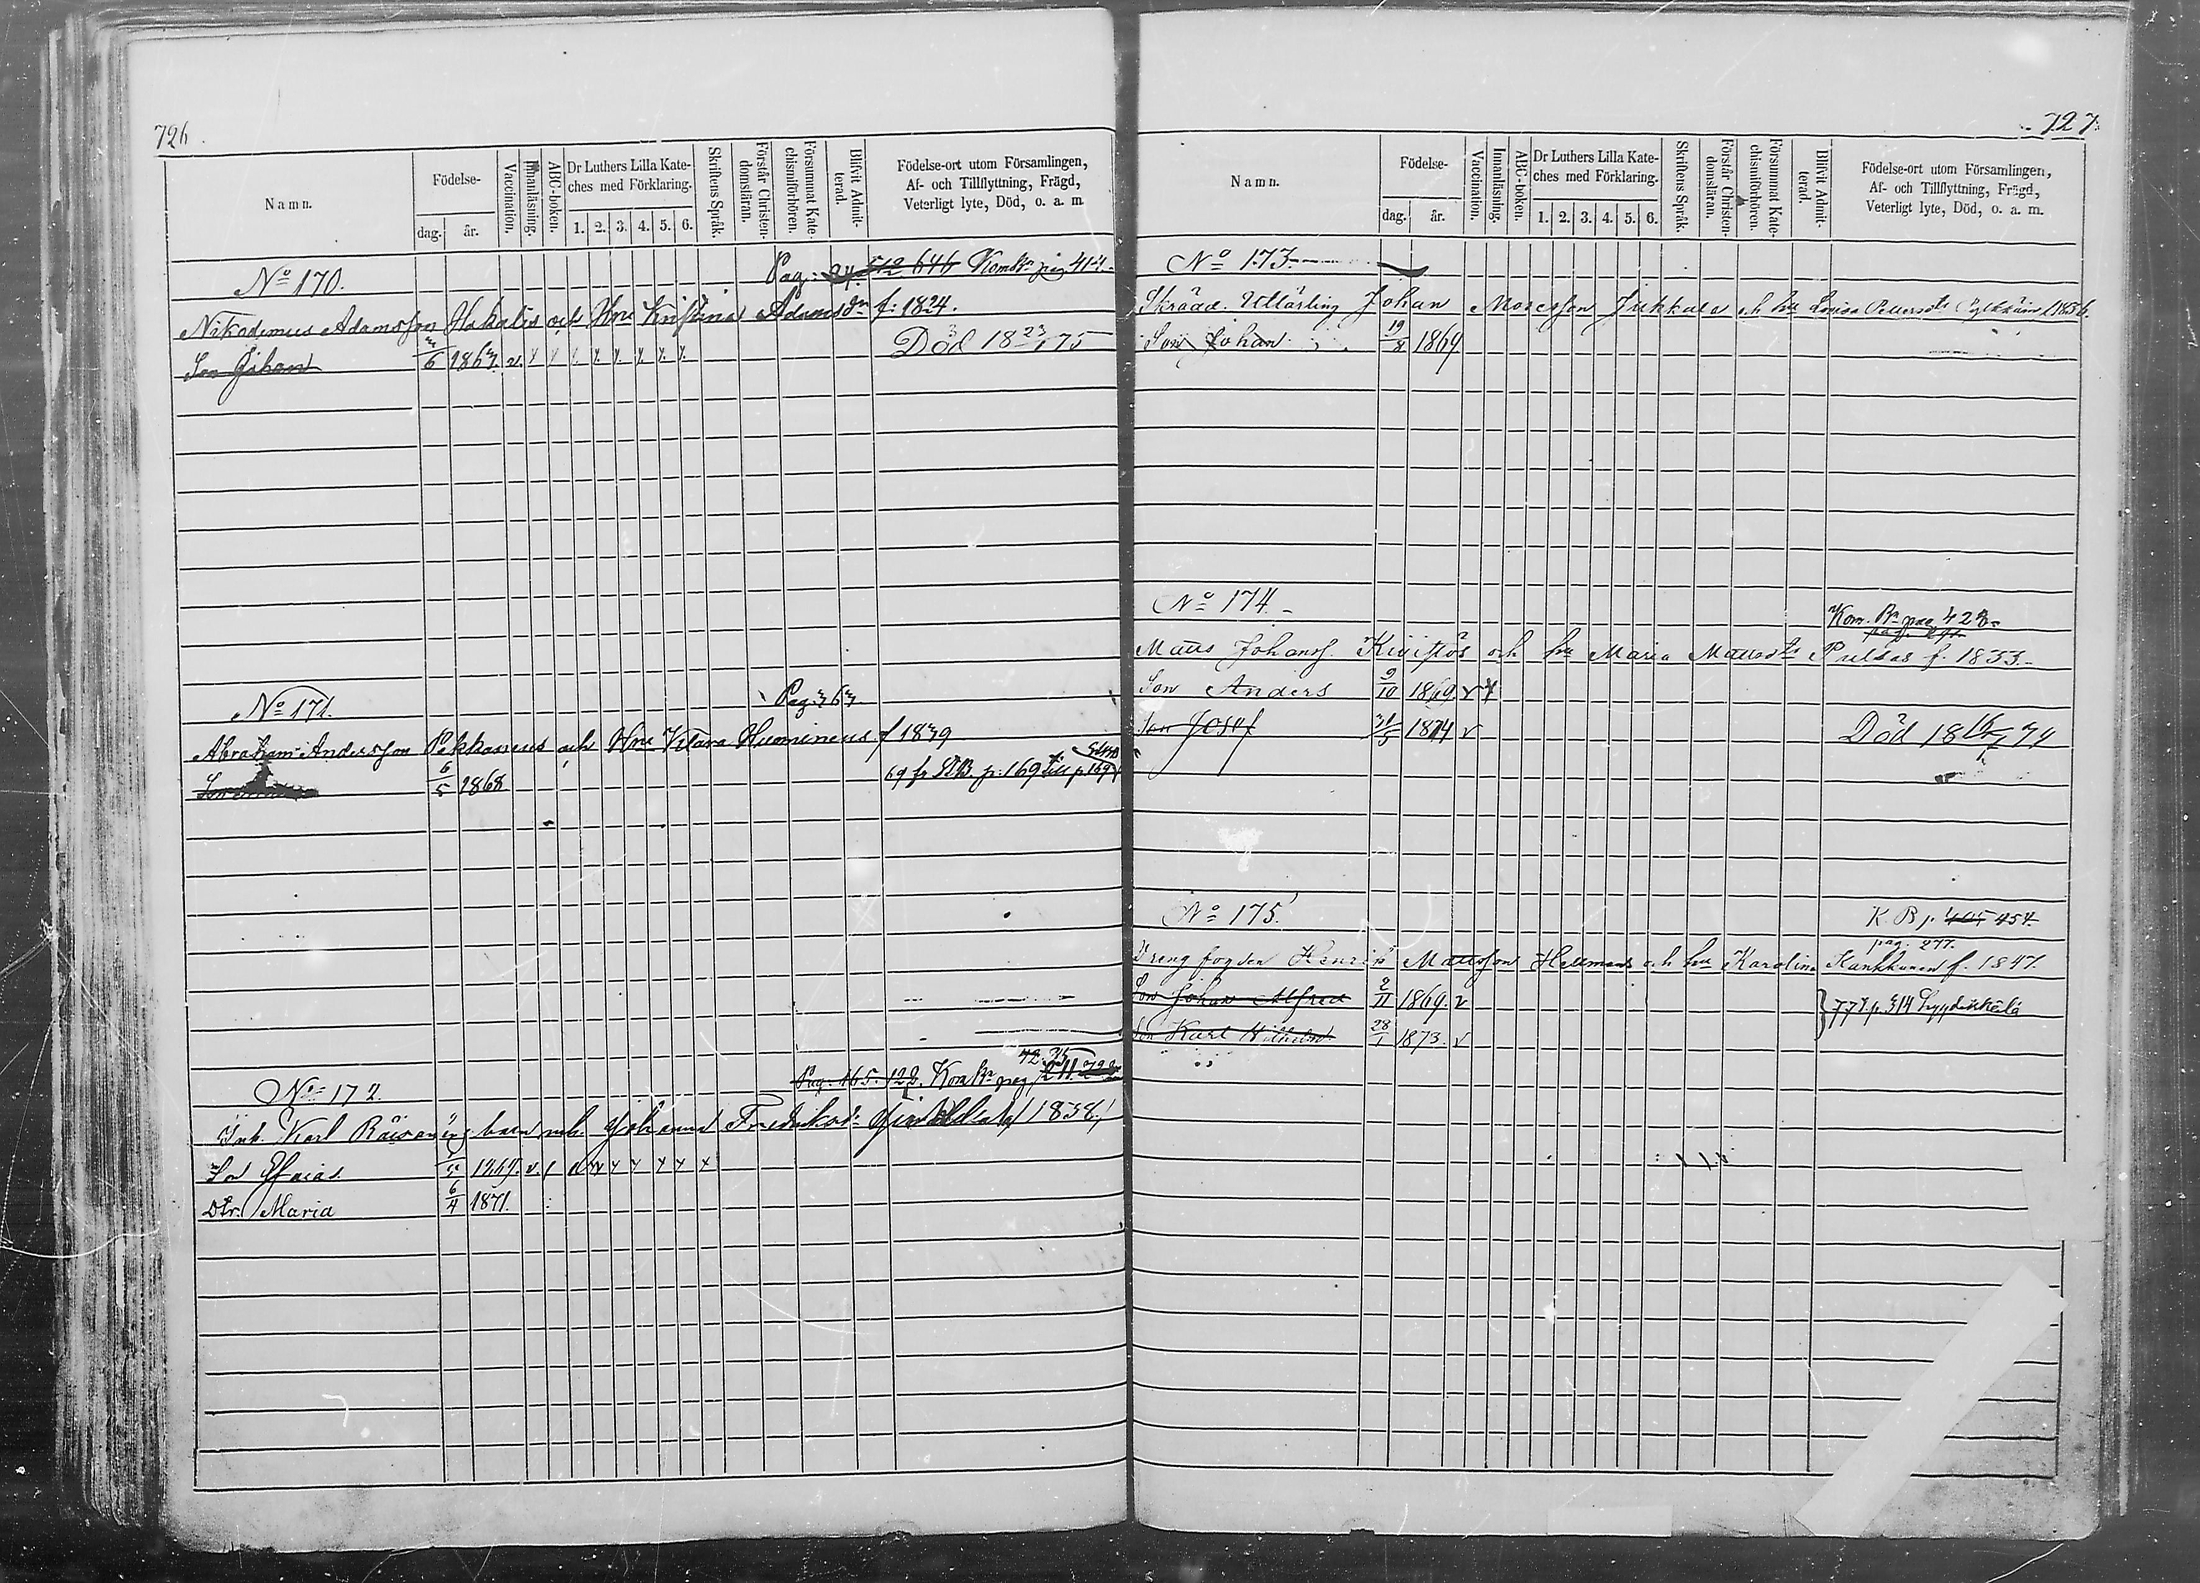 726.
Namn.
Födelse-
dag.
år.
Vaccination.
Innanläsning.
ABC-boken.
Dr Luthers Lilla Kate-
ches med Förklaring.
1. 2. 3. 4. 5. 6.
Skriftens Språk.
Förstår Christen-
domsläran.
Försummat Kate-
chismiförhören.
Blifvit Admit-
terad.
Födelse-ort utom Församlingen,
Af- och Tillflyttning, Frägd,
Veterligt lyte, Död, o. a. m
No 170. Pag: 24. 512 646 KomBn pag 414.
Nikodemus Adamsson Hakalis och Hru Kristina Adamsdr f. 1824.
Son Johan 6 1867. v. Död 18 23/3 75
No 171. Pag: 367.
Abraham Andersson Pekkaneus och Hru Klara Huomineus f 1839
Son 6/5 1868 69 fr SB. p: 169 Till p 169
No 172. Pag. 165. 122. Kom Bn pag
Inh. Karl Räisänens barn mh. Johanna Fredriksdr 1838,
Son Esaias 5 1869. v.
Dtr. Maria 6/4 1871.
727.
Namn.
Födelse-
dag.
år.
Vaccination.
Innanläsning.
ABC-boken.
Dr Luthers Lilla Kate-
ches med Förklaring.
1. 2. 3. 4. 5. 6.
Skriftens Språk.
Förstår Christen-
domsläran.
Försummat Kate-
chismiförhören.
Blifvit Admit-
terad.
Födelse-ort utom Församlingen,
Af- och Tillflyttning, Frägd,
Veterligt lyte, Död, o. a. m.
No 173.
Skrädd. Utlärling Johan Mosesson Jukkala och hu Lovisa Pettersdr 1836.
Son Johan 19/8 1869
No 174. Kom. Bn pag 428.
Matts Johanss. Kivistös och hu Maria Mattsdtr Pulsas f. 1833.
Son Anders 9/10 1869 v
Son Josef 31/5 1874 v Död 18 74
No 175. K. B p. 405 454.
pag. 277.
Drengfogden Henrik Mattsson Hellmans och hu Karolina Kankkunen f. 1847.
Son Johan Alfred 2/11 1869. v 77 p. 314
Son Karl Wilhelm 28/1 1873. v